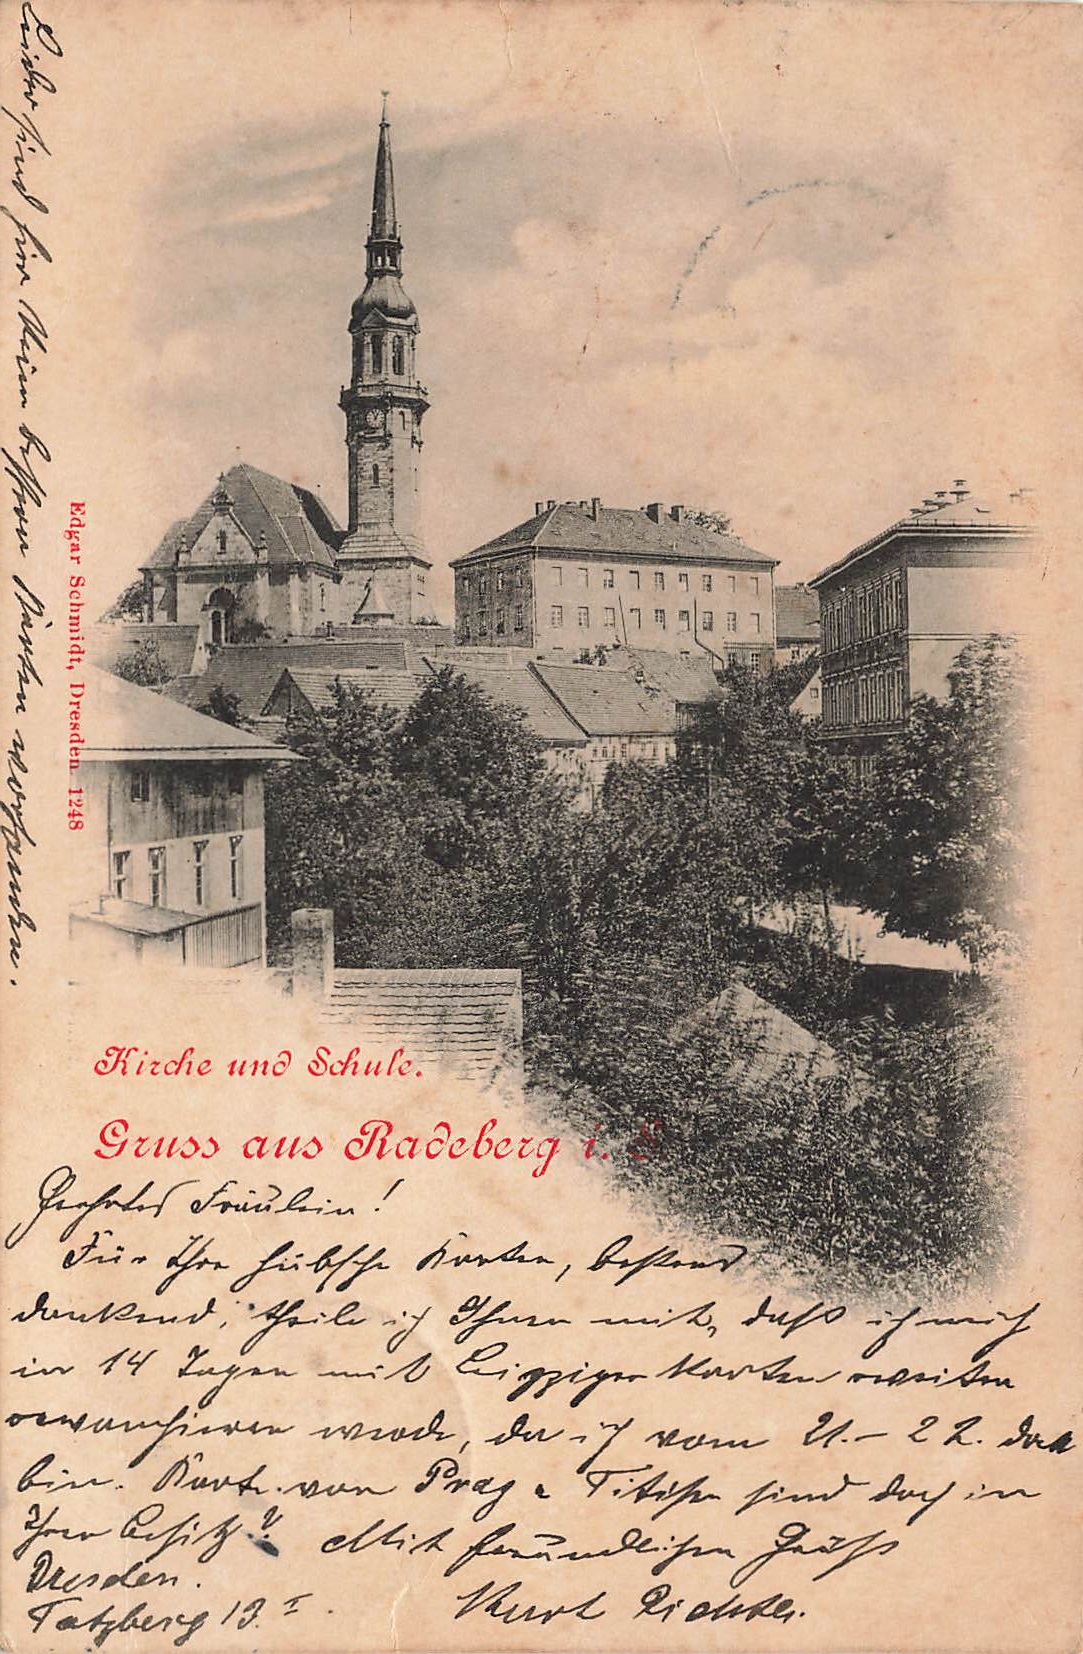 Leider sind hier keine bessren Karten vorhanden.
Edgar Schmidt, Dresden 1248
Kirche und Schule.
Gruss aus Radeberg i. S.
Geehrtes Fräulein!
Für Ihre hübsche Karten, bestens
dankend, theile ich Ihnen mit, daß ich mich
in 14 Tagen mit Leipziger Karten
revanchieren werde, da ich vom 21.– 22. dort
bin. Karte von Prag u Titisee sind doch in
Ihren Besitz?
Mit freundlichen Grüßs
Dresden.
Kurt Richter.
Tatzberg 19.I.